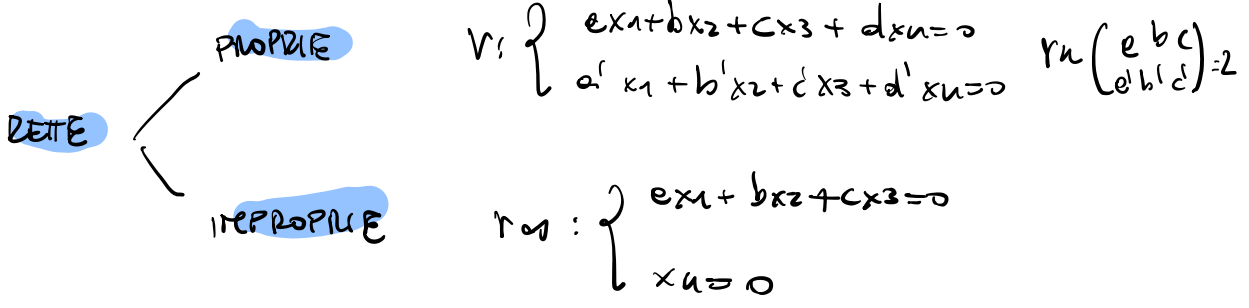 RETTE
PROPRIE
r: { ax1+bx2+cx3+dx4=0
a'x1+b'x2+c'x3+d'x4=0
rk (a b c
a' b' c') =2
IMPROPRIE
r∞: { ax1+bx2+cx3=0
x4=0